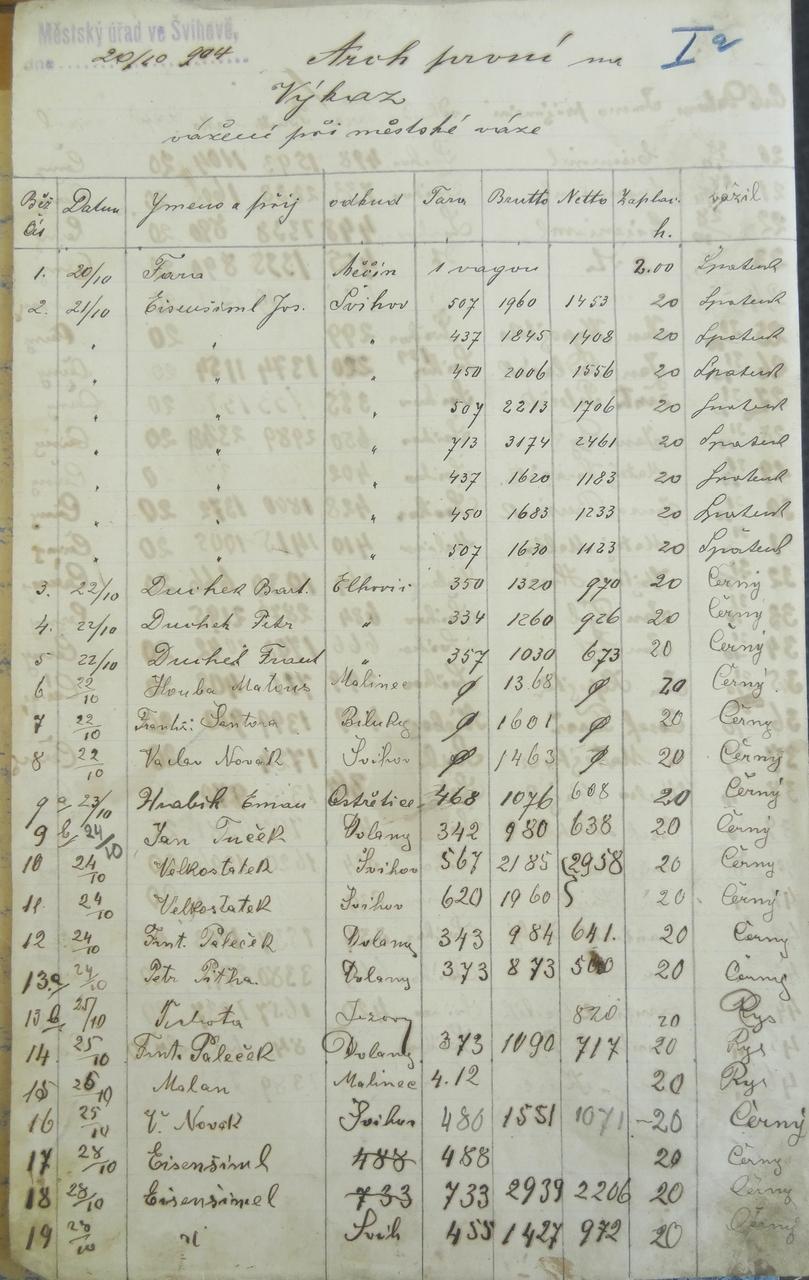 Městský úřad ve Švihově,
dne 20/10 904
Arch první na Ia
Výkaz
vážení při městské váze
Běž čís Datum Ymeno a příj odkud Tara Brutto Netto Zaplac. h. vážil
1. 20/10 Fara Něčín 1 vagon 2.00
2. 21/10 Eisenšiml Jos. Švihov 507 1960 1453 20
" " " 437 1845 1408 20
" " " 450 2006 1556 20
" " " 507 2213 1706 20
" " " 713 3174 2461 20
" " " 437 1620 1183 20
" " " 450 1683 1233 20
" " " 507 1630 1123 20
3. 22/10 Duchek Bart. Elhovic 350 1320 970 20 Černý
4. 22/10 Duchek Petr " 334 1260 926 20 Černý
5 22/10 Duchek Frant " 357 1030 673 20 Černý
6 22/10 Houba Matous Malinec ø 1368 ø 20 Černý.
7 22/10 Santora Biluky ø 1601 ø 20 Černý
8 22/10 Vaclav Novák Švihov ø 1463 ø 20 Černý
9 a 23/10 Hrabík Eman Ostřetice 468 1076 608 20 Černý
9 b 24/10 Jan Tuček Dolany 342 980 638 20 Černý
10 24/10 Velkostatek Švihov 567 2185 2958 20 Černý
11. 24/10 Velkostatek Švihov 620 1960 20 Černý
12 24/10 Frnt. Paleček Dolany 343 984 641. 20 Černý
13a 24/10 Petr Pitha. Dolany 373 873 500 20 Černý
13 b 25/10 Jezovy 820 20 Rys
14. 25/10 Frnt. Paleček Dolany 373 1090 717 20 Rys
15 25/10 Malan Malinec 4.12 20 Rys
16 25/10 V. Novák Švihov 480 1551 1071 20 Černý
17 28/10 Eisenšiml 488 488 20 Černý
18 28/10 Eisenšimel 733 733 2939 2206 20 Černý
19 28/10 " Švih 455 1427 972 20 Černý